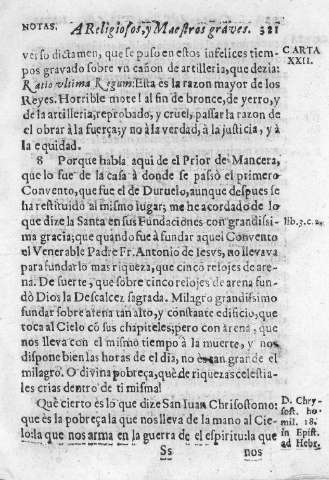 NOTAS. A Religiosos, y Maestros graves. 321
verso dictamen, que se puso en estos infelices tiem-
pos gravado sobre vn cañon de artilleria, que dezia:
Ratio vltima Regum: Esta es la razon mayor de los
Reyes. Horrible mote! al fin de bronce, de yerro, y
de la artilleria, reprobado, y cruel, passar la razon de
el obrar à la fuerça; y no à la verdad, à la justicia, y à
la equidad.
CARTA
XXII.
8 Porque habla aqui de el Prior de Mancera,
que lo fue de la casa à donde se passò el primero
Convento, que fue el de Duruelo, aunque despues se
ha restituìdo al mismo lugar; me he acordado de lo
que dize la Santa en sus Fundaciones con grandissi-
ma gracia; que quando fue à fundar aquel Convento
el Venerable Padre Fr. Antonio de Iesvs, no llevava
para fundarlo mas riqueza, que cinco relojes de are-
na. De suerte, que sobre cinco relojes de arena fun-
dò Dios la Descalcez sagrada. Milagro grandissimo
fundar sobre arena tan alto, y constante edificio, que
toca al Cielo cõ sus chapiteles; pero con arena, que
nos lleva con el mismo tiempo à la muerte, y nos
dispone bien las horas de el dia, no es tan grande el
milagro. O divina pobreça, què de riquezas celestia-
les crias dentro de ti misma!
lib. 3. c. 2.
Què cierto es lo que dize San Iuan Chrisostomo:
que es la pobreça la que nos lleva de la mano al Cie-
lo: la que nos arma en la guerra de el espiritu: la que
D. Chry-
sost. ho-
mil. 18.
in Epist.
ad Hebr.
Ss nos